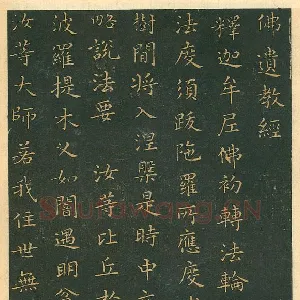 佛遺教經
釋迦牟尼佛初轉法輪
法度須跋陁羅所應度
樹間將入涅槃是時中
略說法要 汝等比丘於
波羅提木叉如闇遇明貧
汝等大師若我住世無